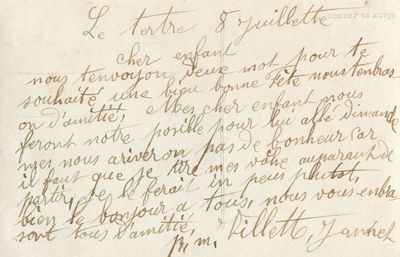 Le tertre 8 Juillette
cher enfant
nous tenvoyon deux mot pour te
souhaité une bien bonne Fête nous tenbras
on d'amitié, Mes cher enfant nous
feront notre posible pour lui allé dimande
mes nous ariveron pas de bonheur car
il faut que je tire mes vache auparavt de
partir, je le ferait in peus plutot,
bien le bonjour a tous, nous vous enbra
sont tous d'amitié,
Jannet